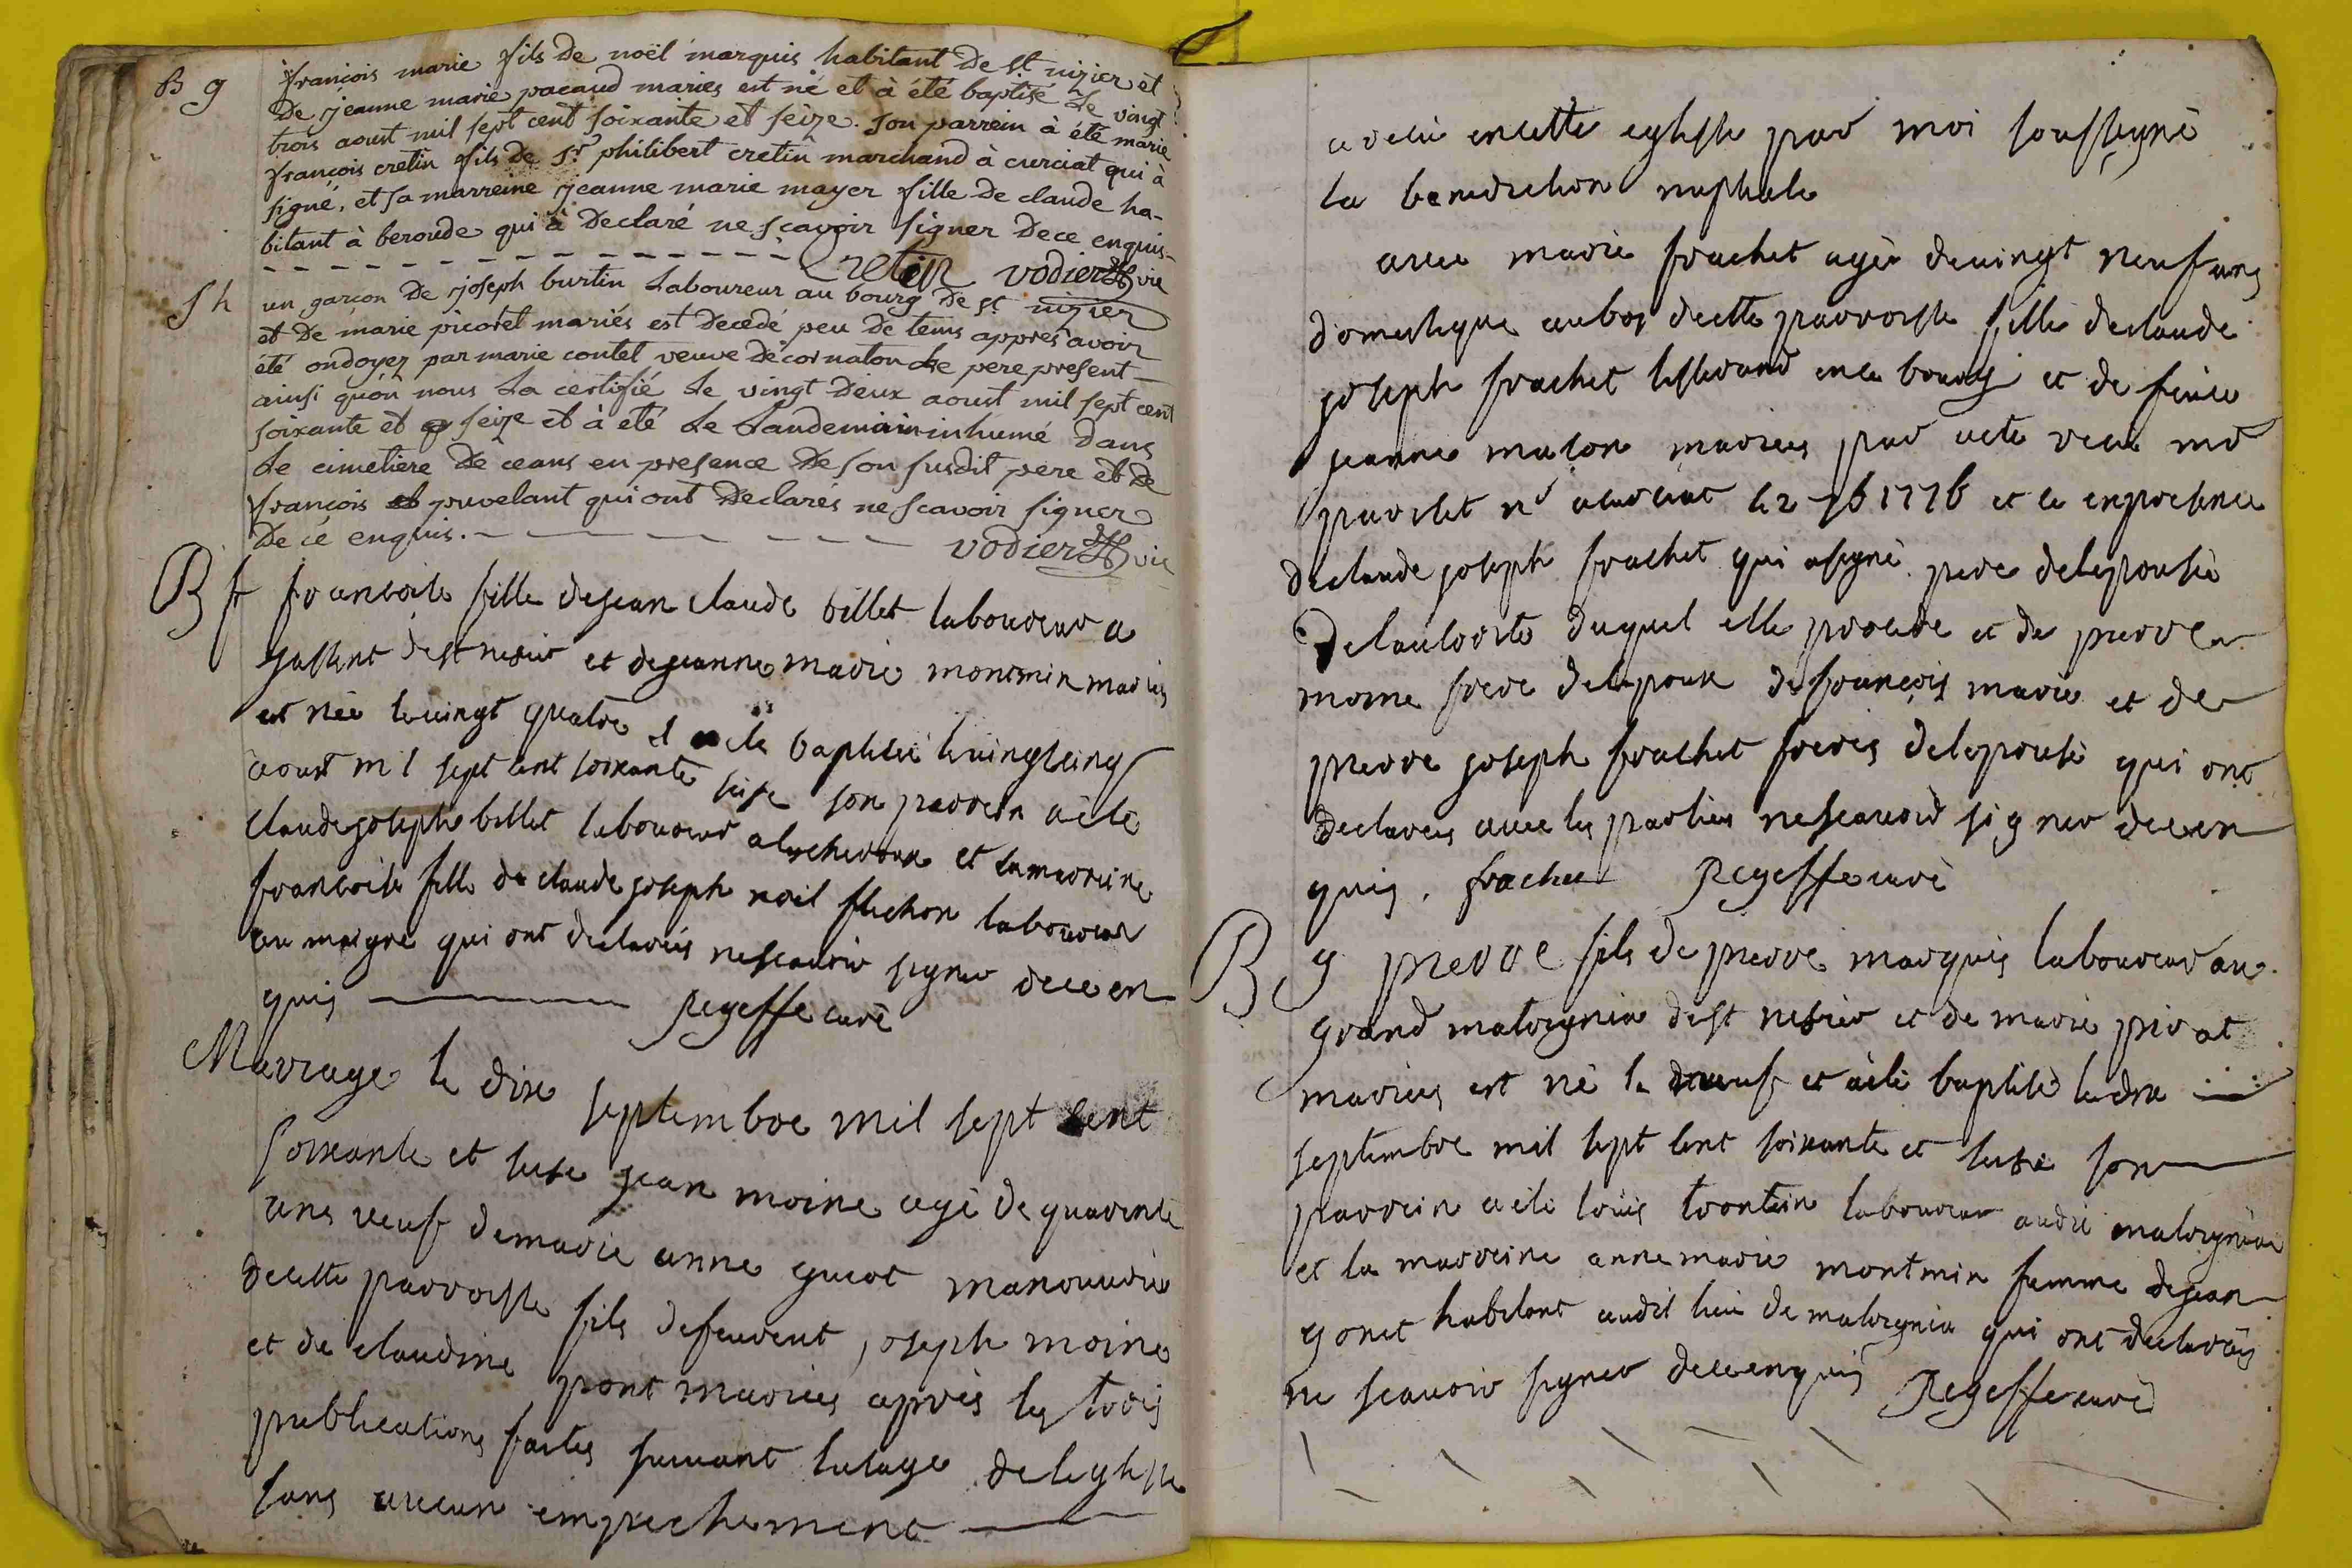 B g
françois marie fils de noël marquis habitant de st nizier et
de jeanne marie pacaud mariés est né et à été baptisé le vingt
trois aoust mil sept cent soixante et seize. son parrein à été marie
françois cretin fils de sr philibert cretin marchand à curciat qui à
signé, et sa marreine jeanne marie mayer fille de claude ha-
bitant à beroude qui à declaré ne scavoir signer de ce enquis-
Cretin vodier vic
S h
un garçon de joseph burtin laboureur au bourg de st nizier
et de marie picoret mariés est decedé peu de tems appres avoir
été ondoyez par marie contet veuve décornaton le pere present
ainsi quón nous la certifié le vingt deux aoust mil sept cent
soixante et seize et à été le landemain inhumé dans
le cimetiere de ceans en presence de son susdit pere et de
françois pruvelant qui ont declarés ne scavoir signer
de cé enquis. vodier vic
B f francoise fille dejean claude billet laboureur a
gassent dest nisier et dejeanne marie montmin mariés
est née levingt quatre et a ete baptisée levingtcinq
aoust mil sept cent soixante seise son parrein a ete
claude joseph billet laboureur et la marreine
francoise fille de claude joseph noil flechon laboureur
au maigre qui ont declarés nescavoir signer dece en
quis regeffe curé
Mariage le dix septembre mil sept cent
soixante et seise jean moine agé de quarente
ans veuf demarie anne guiot manouvrié
decette parroisse fils defeuvent joseph moine
et de claudine pont mariés aprés les trois
publications faites suivant lusage deleglisse
sans aucun empechement
a recu encette eglisse par moi soussigné
la benediction nuptiale
avec marie frachet agée devingt neuf ans
domestique aubos decette parroisse fille declaude
joseph frachet tisserand en ce bourg et de feüe
jeanne maton mariés par acte recu md
parolet nd acurciat le 2 7b 1776 et ce enpresence
declaude joseph frachet qui asigné pere delepousée
delautorite duquel elle procede et de pierre
moine frere delepoux defrançois marie et de
pierre joseph frachet freres delepousé qui ont
declarés avec les parties nescavoir signer dece en
quis. frachet Regeffe curé
B g pierre fils de pierre marquis laboureur au
grand matregnia dest nesier et de marie privat
mariés est né le neuf et aété baptisé ledix
septembre mil sept cent soixante et seise son
parrein a eté loüis trontin laboureur audit matregnia
et la marreine anne marie montmin femme dejean
gonet habitant audit lieu de matregnia qui ont declarés
ne scavoir signer dece enquis Regeffe curé